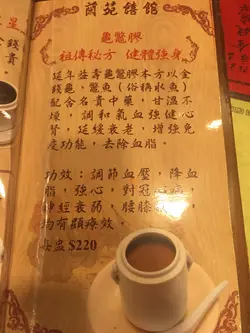 蘭苑饎館
龜鱉膠
祖傳秘方 健體強身
延年益壽龜鱉膠本方以金
錢龜,鱉魚(俗稱水魚)
配合名貴中藥,甘溫不
燥,調和氣血強健心
腎,延緩衰老,增強免
疫功能,去除血脂。
功效:調節血壓,降血
脂,強心,對冠心病,
神經衰弱,腰膝
均有顯療效。
每盅 $220
錢
貴